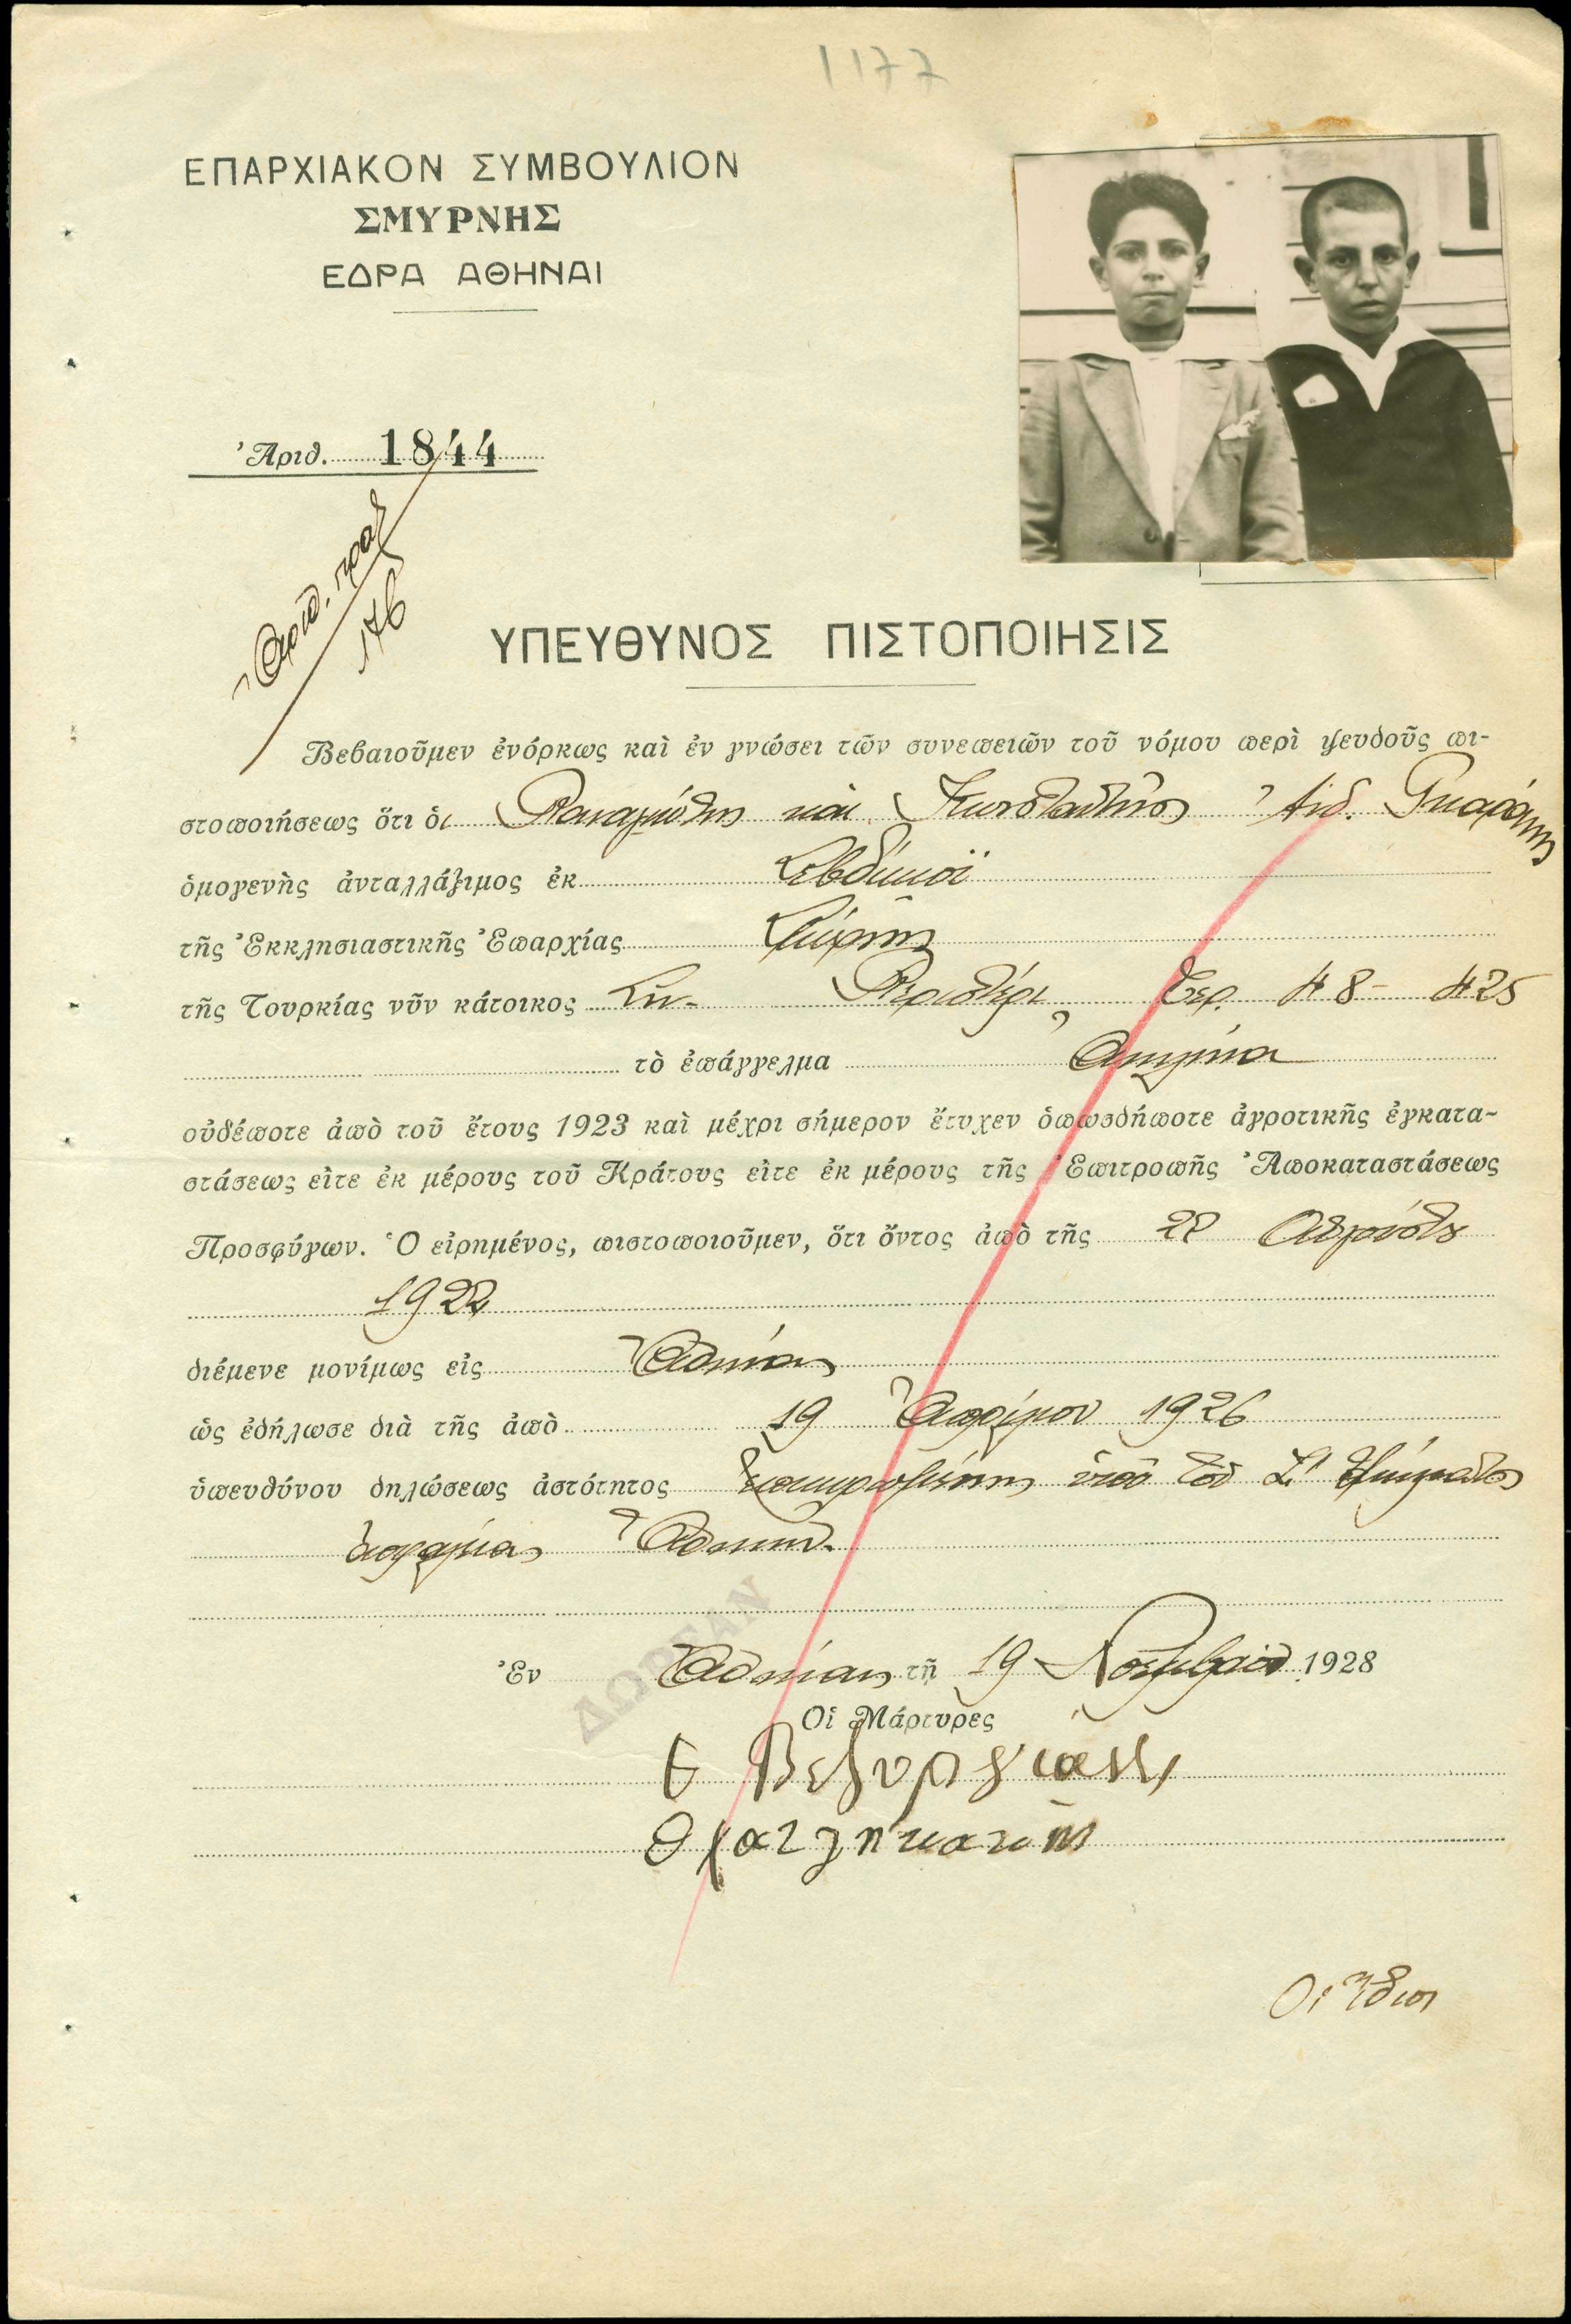 1177
ΕΠΑΡΧΙΑΚΟΝ ΣΥΜΒΟΥΛΙΟΝ
ΣΜΥΡΝΗΣ
ΕΔΡΑ ΑΘΗΝΑΙ
Ἀριθ. 1844
Ἀριθ. πραξ
176
ΥΠΕΥΘΥΝΟΣ ΠΙΣΤΟΠΟΙΗΣΙΣ
Βεβαιοῦμεν ἐνόρκως καὶ ἐν γνώσει τῶν συνεπειῶν τοῦ νόμου περὶ ψευδοῦς πι-
στοποιήσεως ὅτι ὁι Παναγιώτης καὶ Κωνσταντῖνος
ὁμογενὴς ἀνταλλάξιμος ἐκ Σεβδίκιοϊ
τῆς Ἐκκλησιαστικῆς Ἐπαρχίας Σμύρνης
τῆς Τουρκίας νῦν κάτοικος Συν. Περιστέρι, 48 - 425
τὸ ἐπάγγελμα
οὐδέποτε ἀπὸ τοῦ ἔτους 1923 καὶ μέχρι σήμερον ἔτυχεν ὁπωσδήποτε ἀγροτικῆς ἐγκατα-
στάσεως εἴτε ἐκ μέρους τοῦ Κράτους εἴτε ἐκ μέρους τῆς Ἐπιτροπῆς Ἀποκαταστάσεως
Προσφύγων. Ὁ εἰρημένος, πιστοποιοῦμεν, ὅτι ὄντος ἀπὸ τῆς Αὐγούστου
1922
διέμενε μονίμως εἰς Ἀθήνας
ὡς ἐδήλωσε διὰ τῆς ἀπὸ 19 Ἀπριλίου 1926
ὑπευθύνου δηλώσεως ἀστότητος ἐπικυρωμένης ὑπὸ τοῦ Ζ' τμήματος
ἀσφαλείας Ἀθηνῶν.
ΔΩΡΕΑΝ
Ἐν Ἀθήναις τῇ 19 Νοεμβρίου 1928
Οἱ Μάρτυρες
Οἱ ἴδιοι